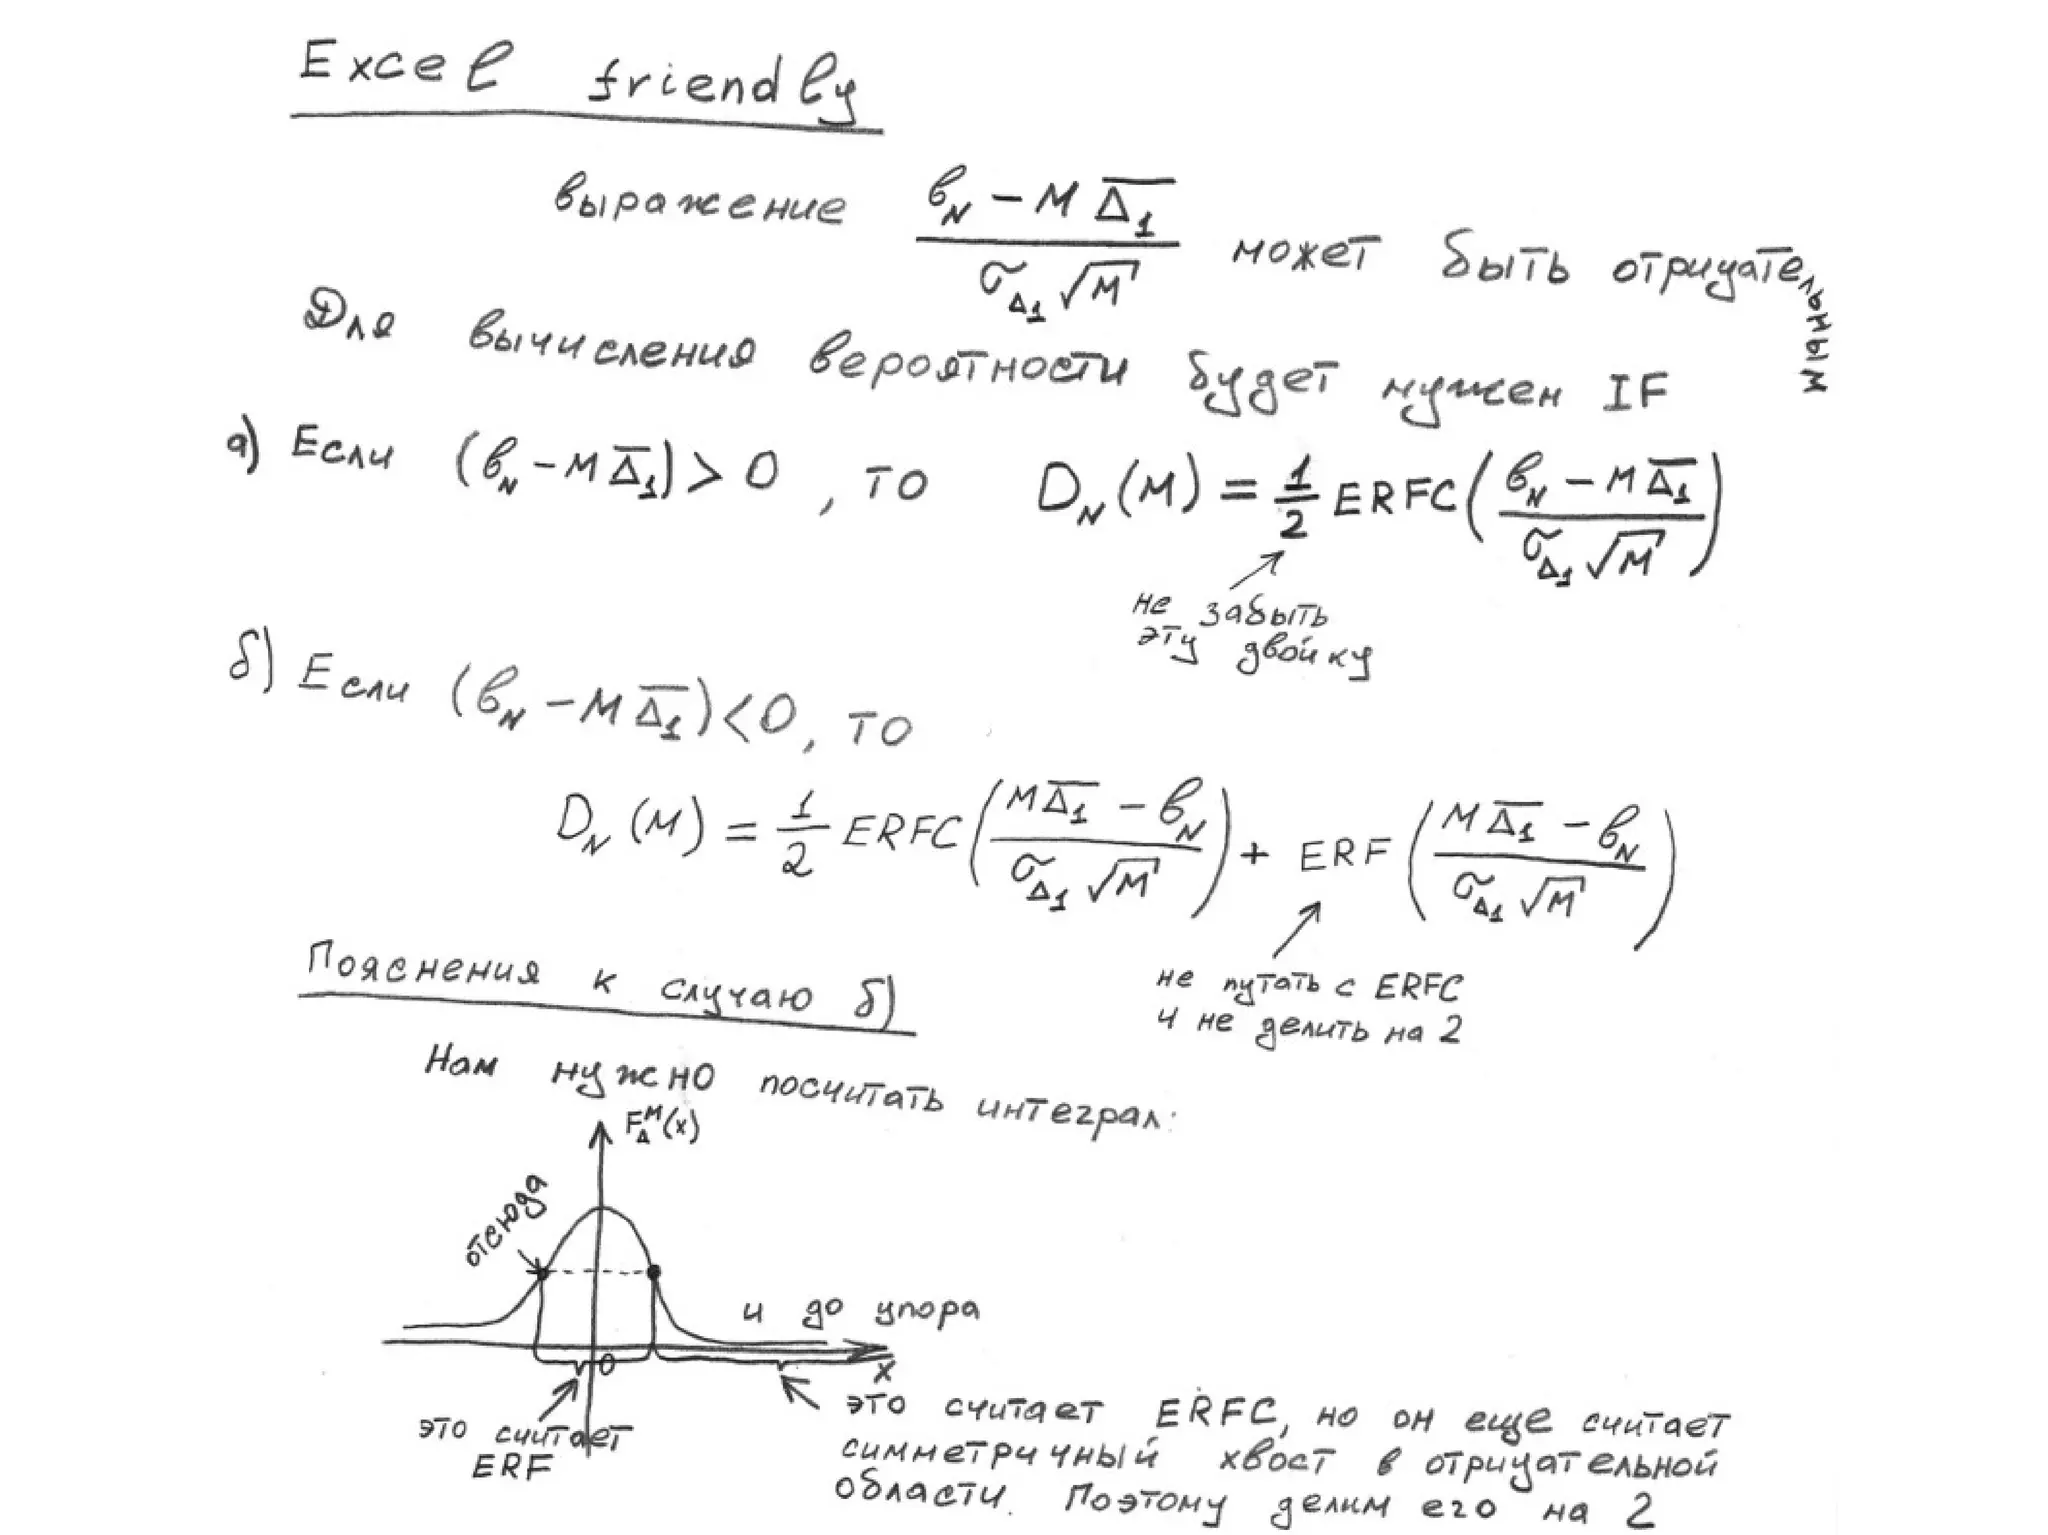 Excel friendly
выражение (b_N - M Δ̄_1) / (σ_Δ1 √M) может быть отрицательным
Для вычисления вероятности будет нужен IF
а) Если (b_N - M Δ̄_1) > 0, то D_N(M) = 1/2 ERFC((b_N - M Δ̄_1) / (σ_Δ1 √M))
не забыть
эту двойку
б) Если (b_N - M Δ̄_1) < 0, то
D_N(M) = 1/2 ERFC((M Δ̄_1 - b_N) / (σ_Δ1 √M)) + ERF((M Δ̄_1 - b_N) / (σ_Δ1 √M))
не путать с ERFC
и не делить на 2
Пояснения к случаю б)
Нам нужно посчитать интеграл:
F_Δ^M(x)
отсюда
и до упора
0
x
это считает
ERF
это считает ERFC, но он еще считает
симметричный хвост в отрицательной
области. Поэтому делим его на 2